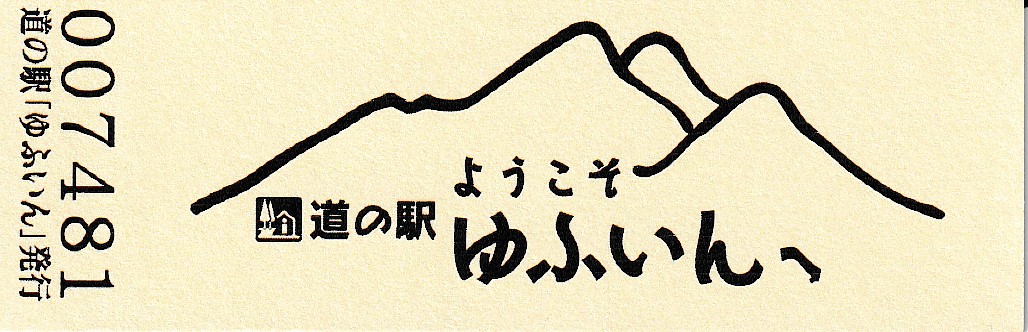 007481
道の駅「ゆふいん」発行
ようこそ
道の駅 ゆふいんへ